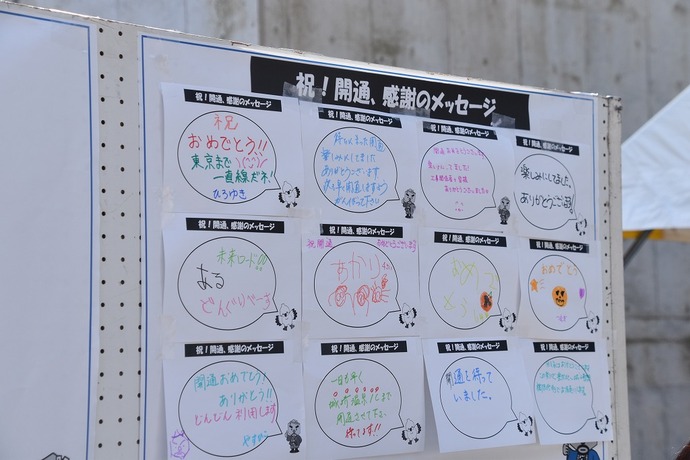 祝！開通、感謝のメッセージ
祝！開通、感謝のメッセージ
祝
おめでとう!!
東京まで
一直線だネ!
ひろゆき
祝！開通、感謝のメッセージ
楽しみにしてました
ありがとうございます
祝！開通、感謝のメッセージ
ありがとうございました
祝！開通、感謝のメッセージ
楽しみにしてました。
ありがとうございます!
祝！開通、感謝のメッセージ
未来ロード!!
はる
どんぐりぺーす
祝！開通、感謝のメッセージ
祝開通
あかり
祝！開通、感謝のメッセージ
おめでとう
祝！開通、感謝のメッセージ
おめでとう
祝！開通、感謝のメッセージ
開通おめでとう!
ありがとう!!
じゃんじゃん利用します
祝！開通、感謝のメッセージ
一日も早く
城崎温泉ICまで
開通させて下さい
待ってます!!
祝！開通、感謝のメッセージ
開通を待って
いました。
祝！開通、感謝のメッセージ